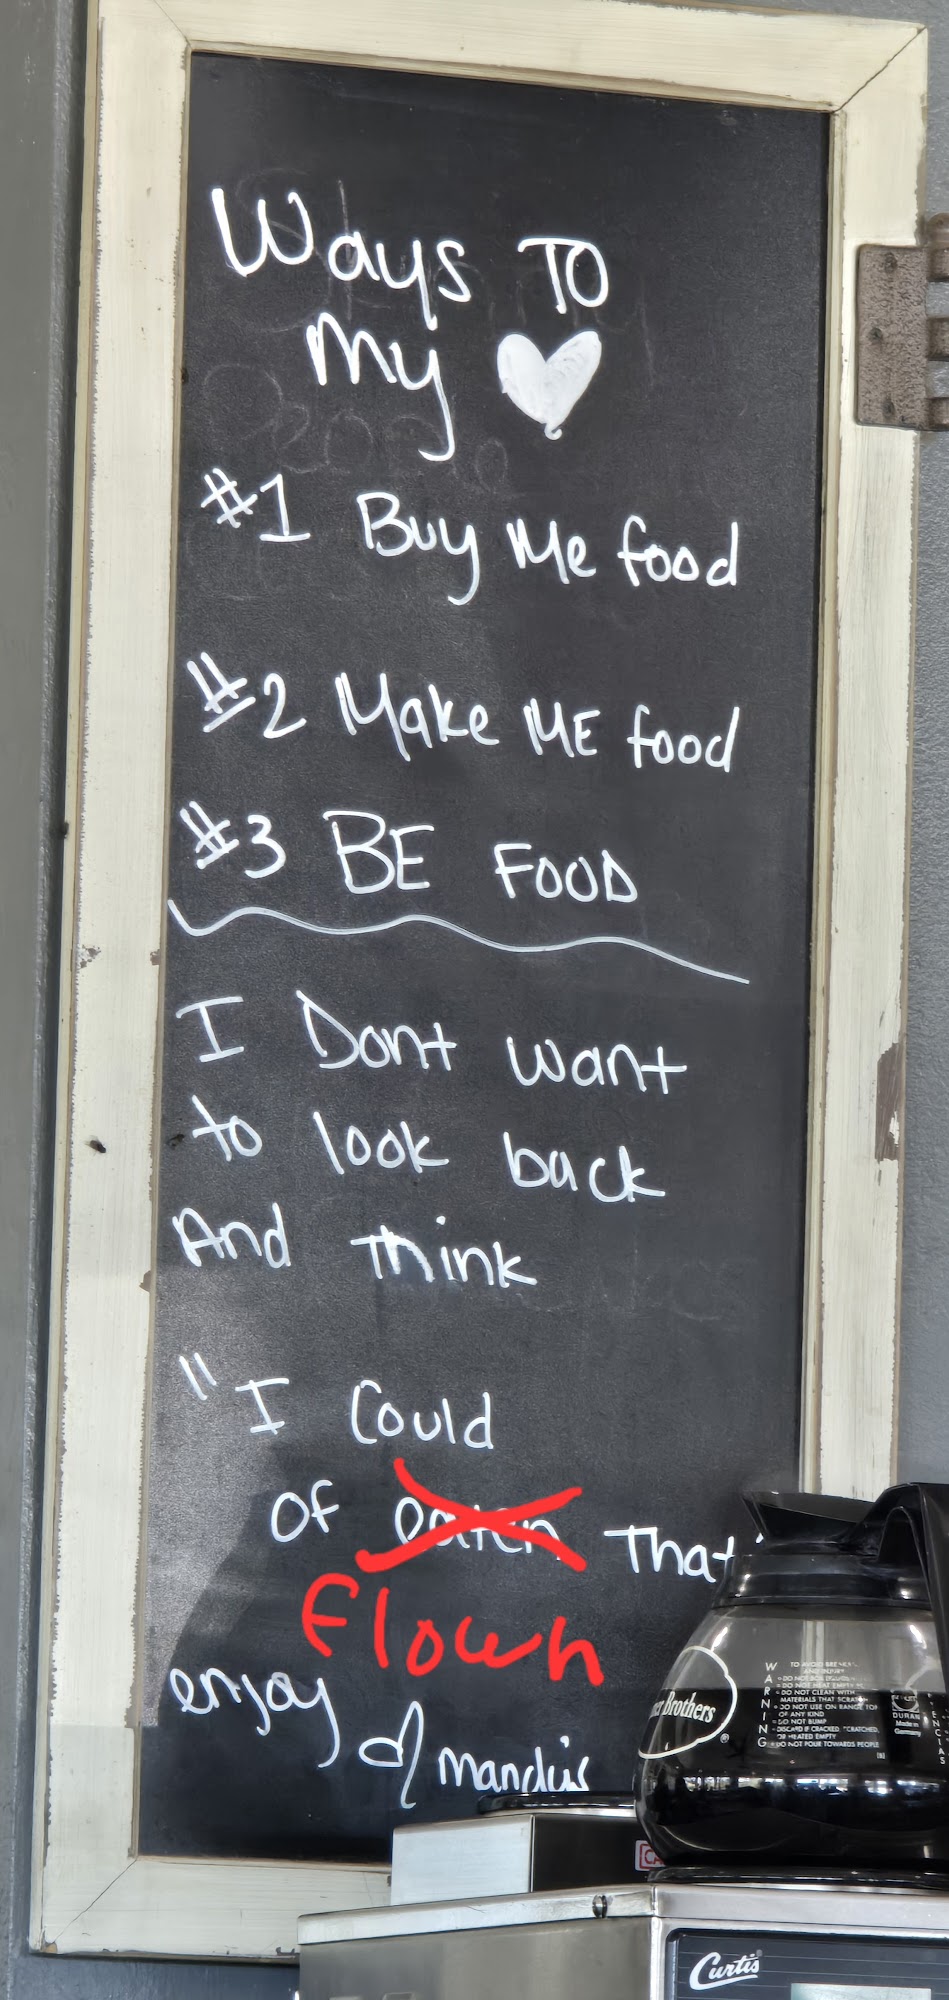 Ways TO
My
#1 Buy Me food
#2 Make ME food
#3 BE FOOD
I Dont want
to look back
And think
"I Could
of eaten That
flown
enjoy
Brothers
WARNING
TO AVOID BREAKAGE
AND INJURY
• DO NOT HEAT EMPTY
• DO NOT CLEAN WITH
MATERIALS THAT SCRATCH
• DO NOT USE ON RANGE TOP
OF ANY KIND
• DO NOT BUMP
• DISCARD IF CRACKED, SCRATCHED,
OR HEATED EMPTY
• DO NOT POUR TOWARDS PEOPLE
DURAN
Made in
Germany
Curtis